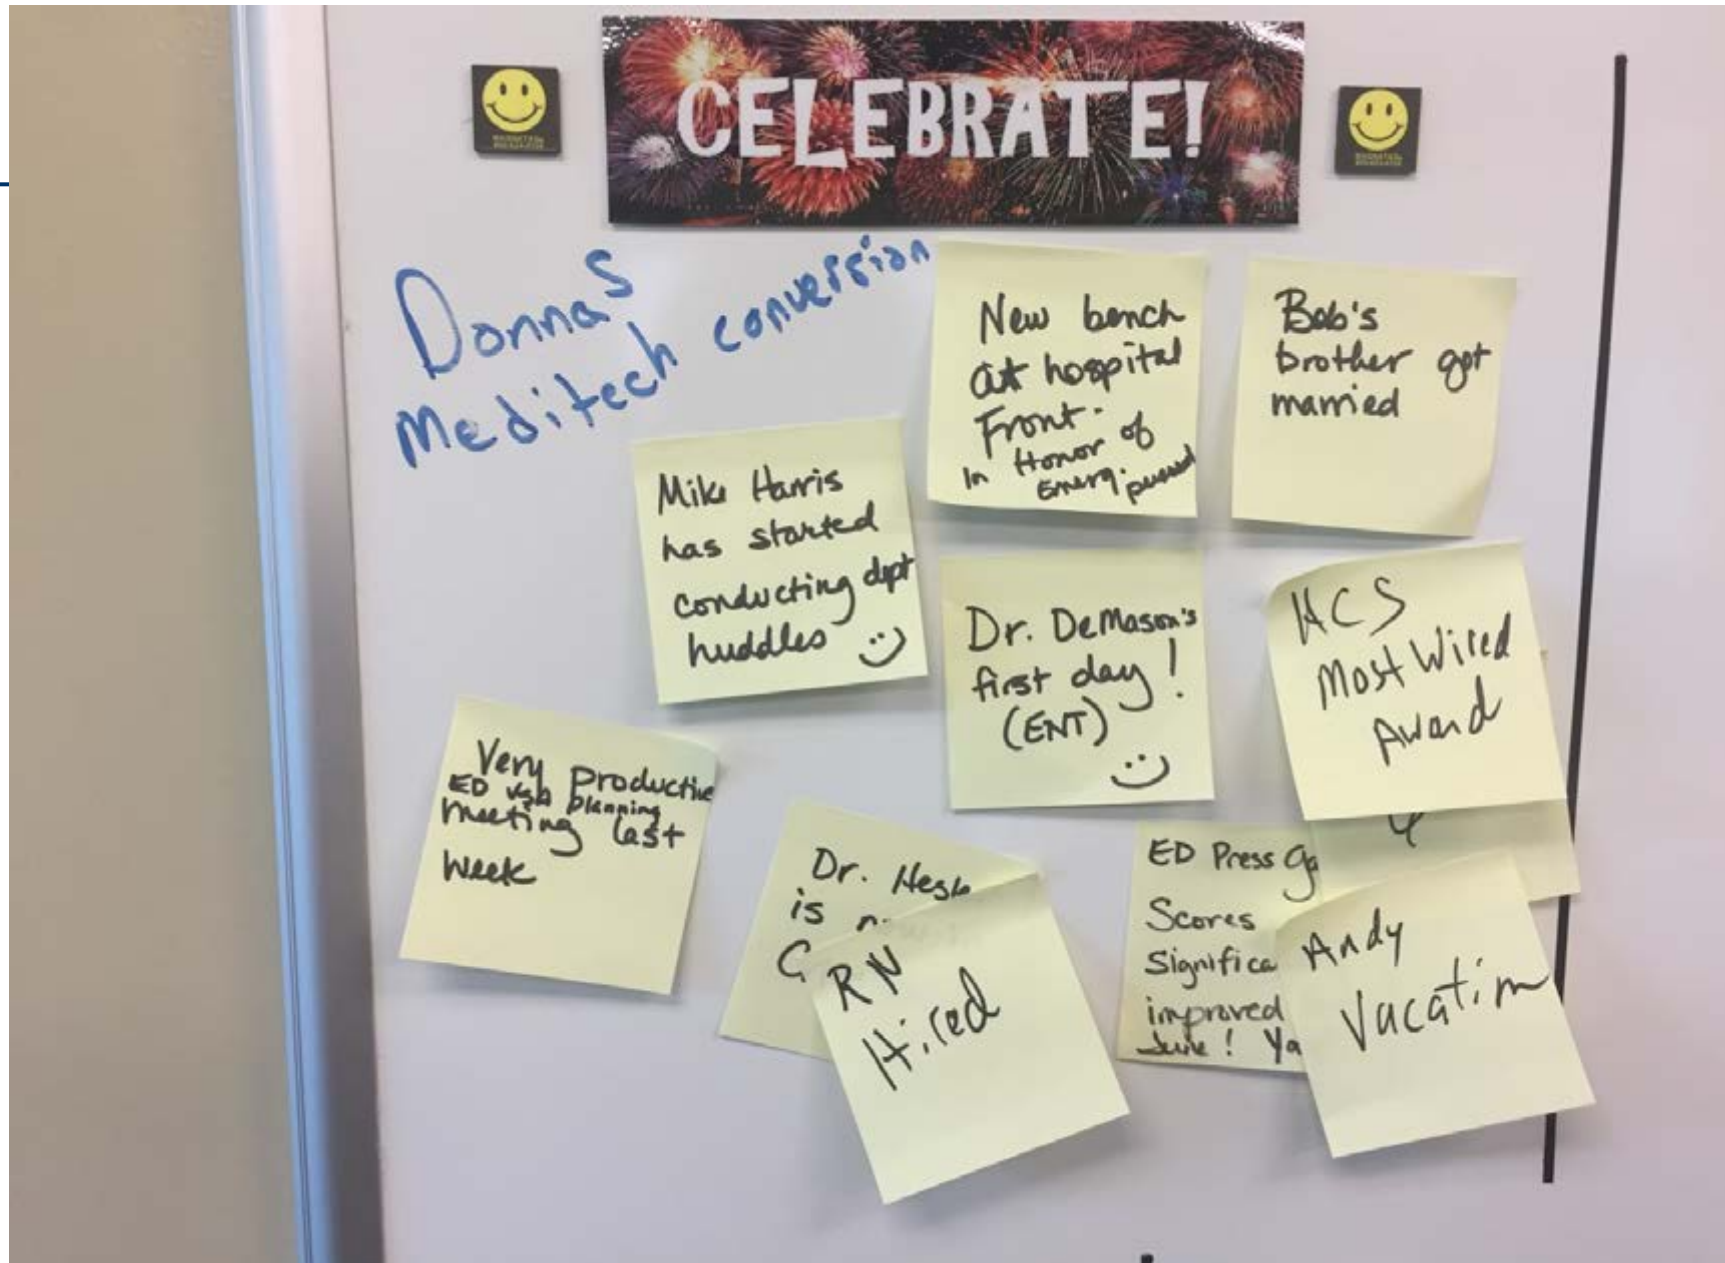 CELEBRATE!
Donnas
Meditech conversion
New bench
at hospital
Front.
In Honor of
Emerg.
Bob's
brother got
married
Mike Harris
has started
conducting dept
huddles
Dr. DeMason's
first day!
(ENT)
HCS
Most Wired
Award
Very Productive
ED planning
meeting last
week
Dr.
is
RN
Hired
ED Press
Scores
improved
June!
Andy
Vacation